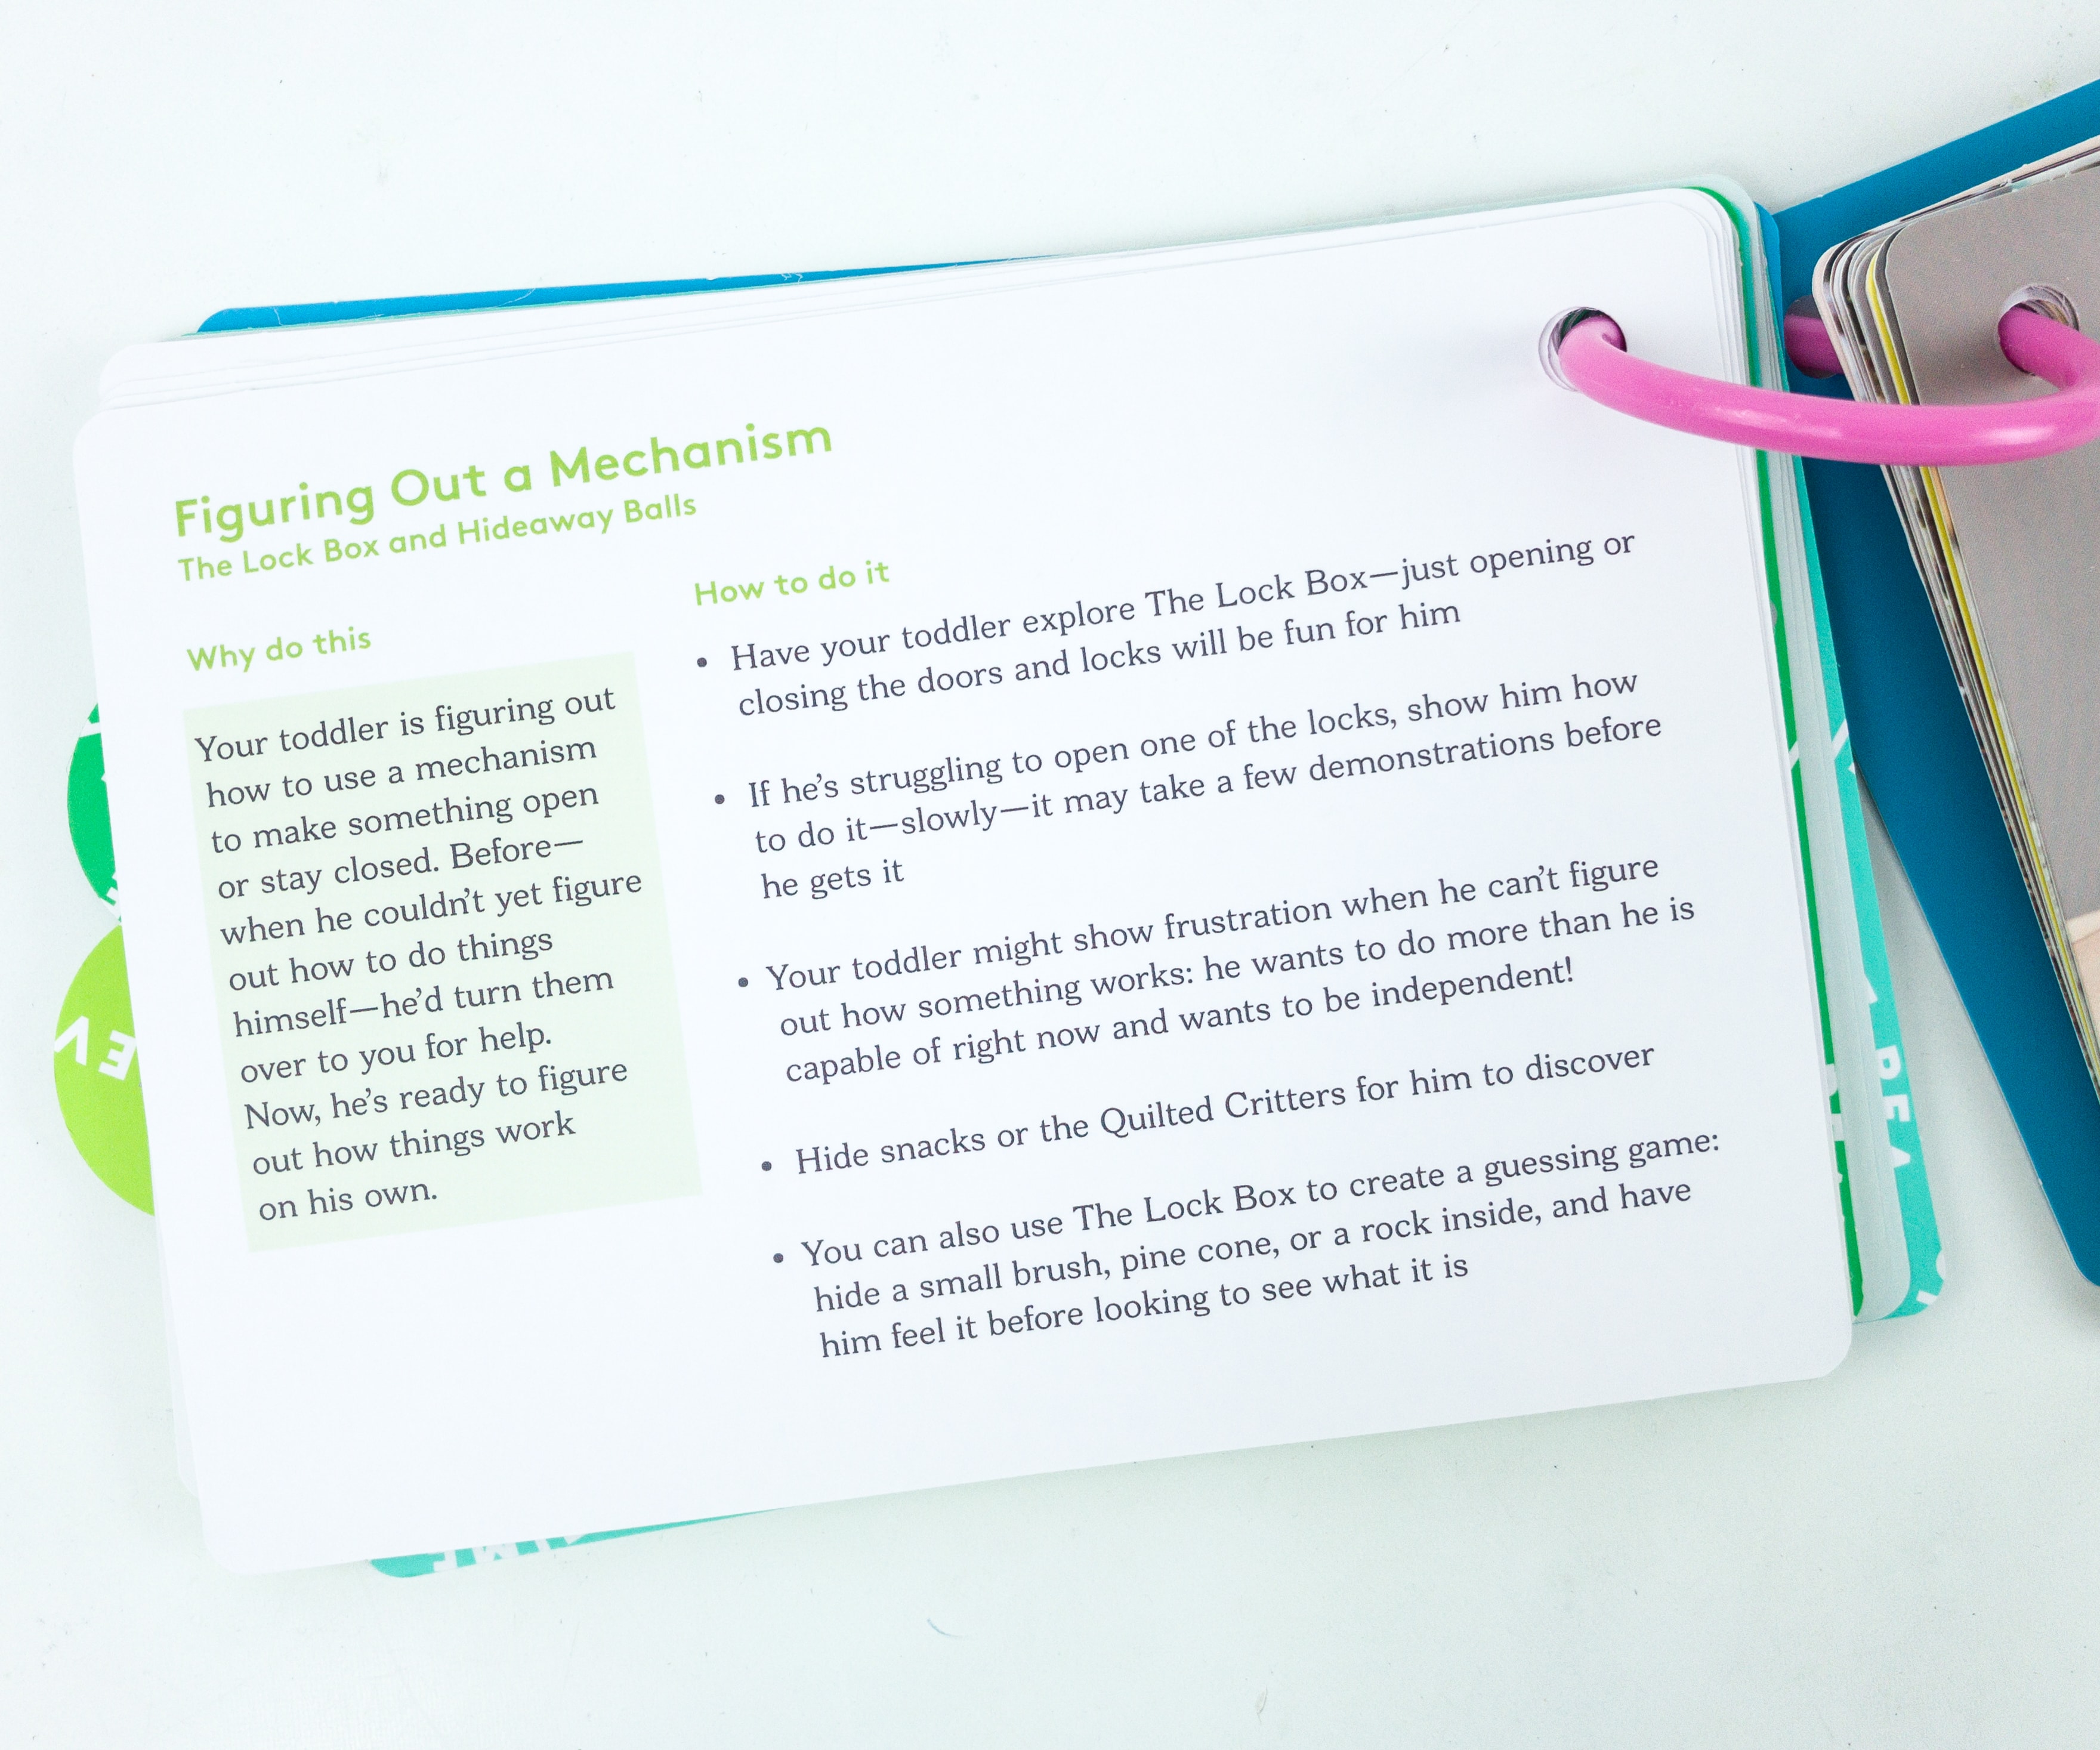 Figuring Out a Mechanism
The Lock Box and Hideaway Balls
Why do this
Your toddler is figuring out
how to use a mechanism
to make something open
or stay closed. Before—
when he couldn't yet figure
out how to do things
himself—he'd turn them
over to you for help.
Now, he's ready to figure
out how things work
on his own.
How to do it
• Have your toddler explore The Lock Box—just opening or
closing the doors and locks will be fun for him
• If he's struggling to open one of the locks, show him how
to do it—slowly—it may take a few demonstrations before
he gets it
• Your toddler might show frustration when he can't figure
out how something works: he wants to do more than he is
capable of right now and wants to be independent!
• Hide snacks or the Quilted Critters for him to discover
• You can also use The Lock Box to create a guessing game:
hide a small brush, pine cone, or a rock inside, and have
him feel it before looking to see what it is